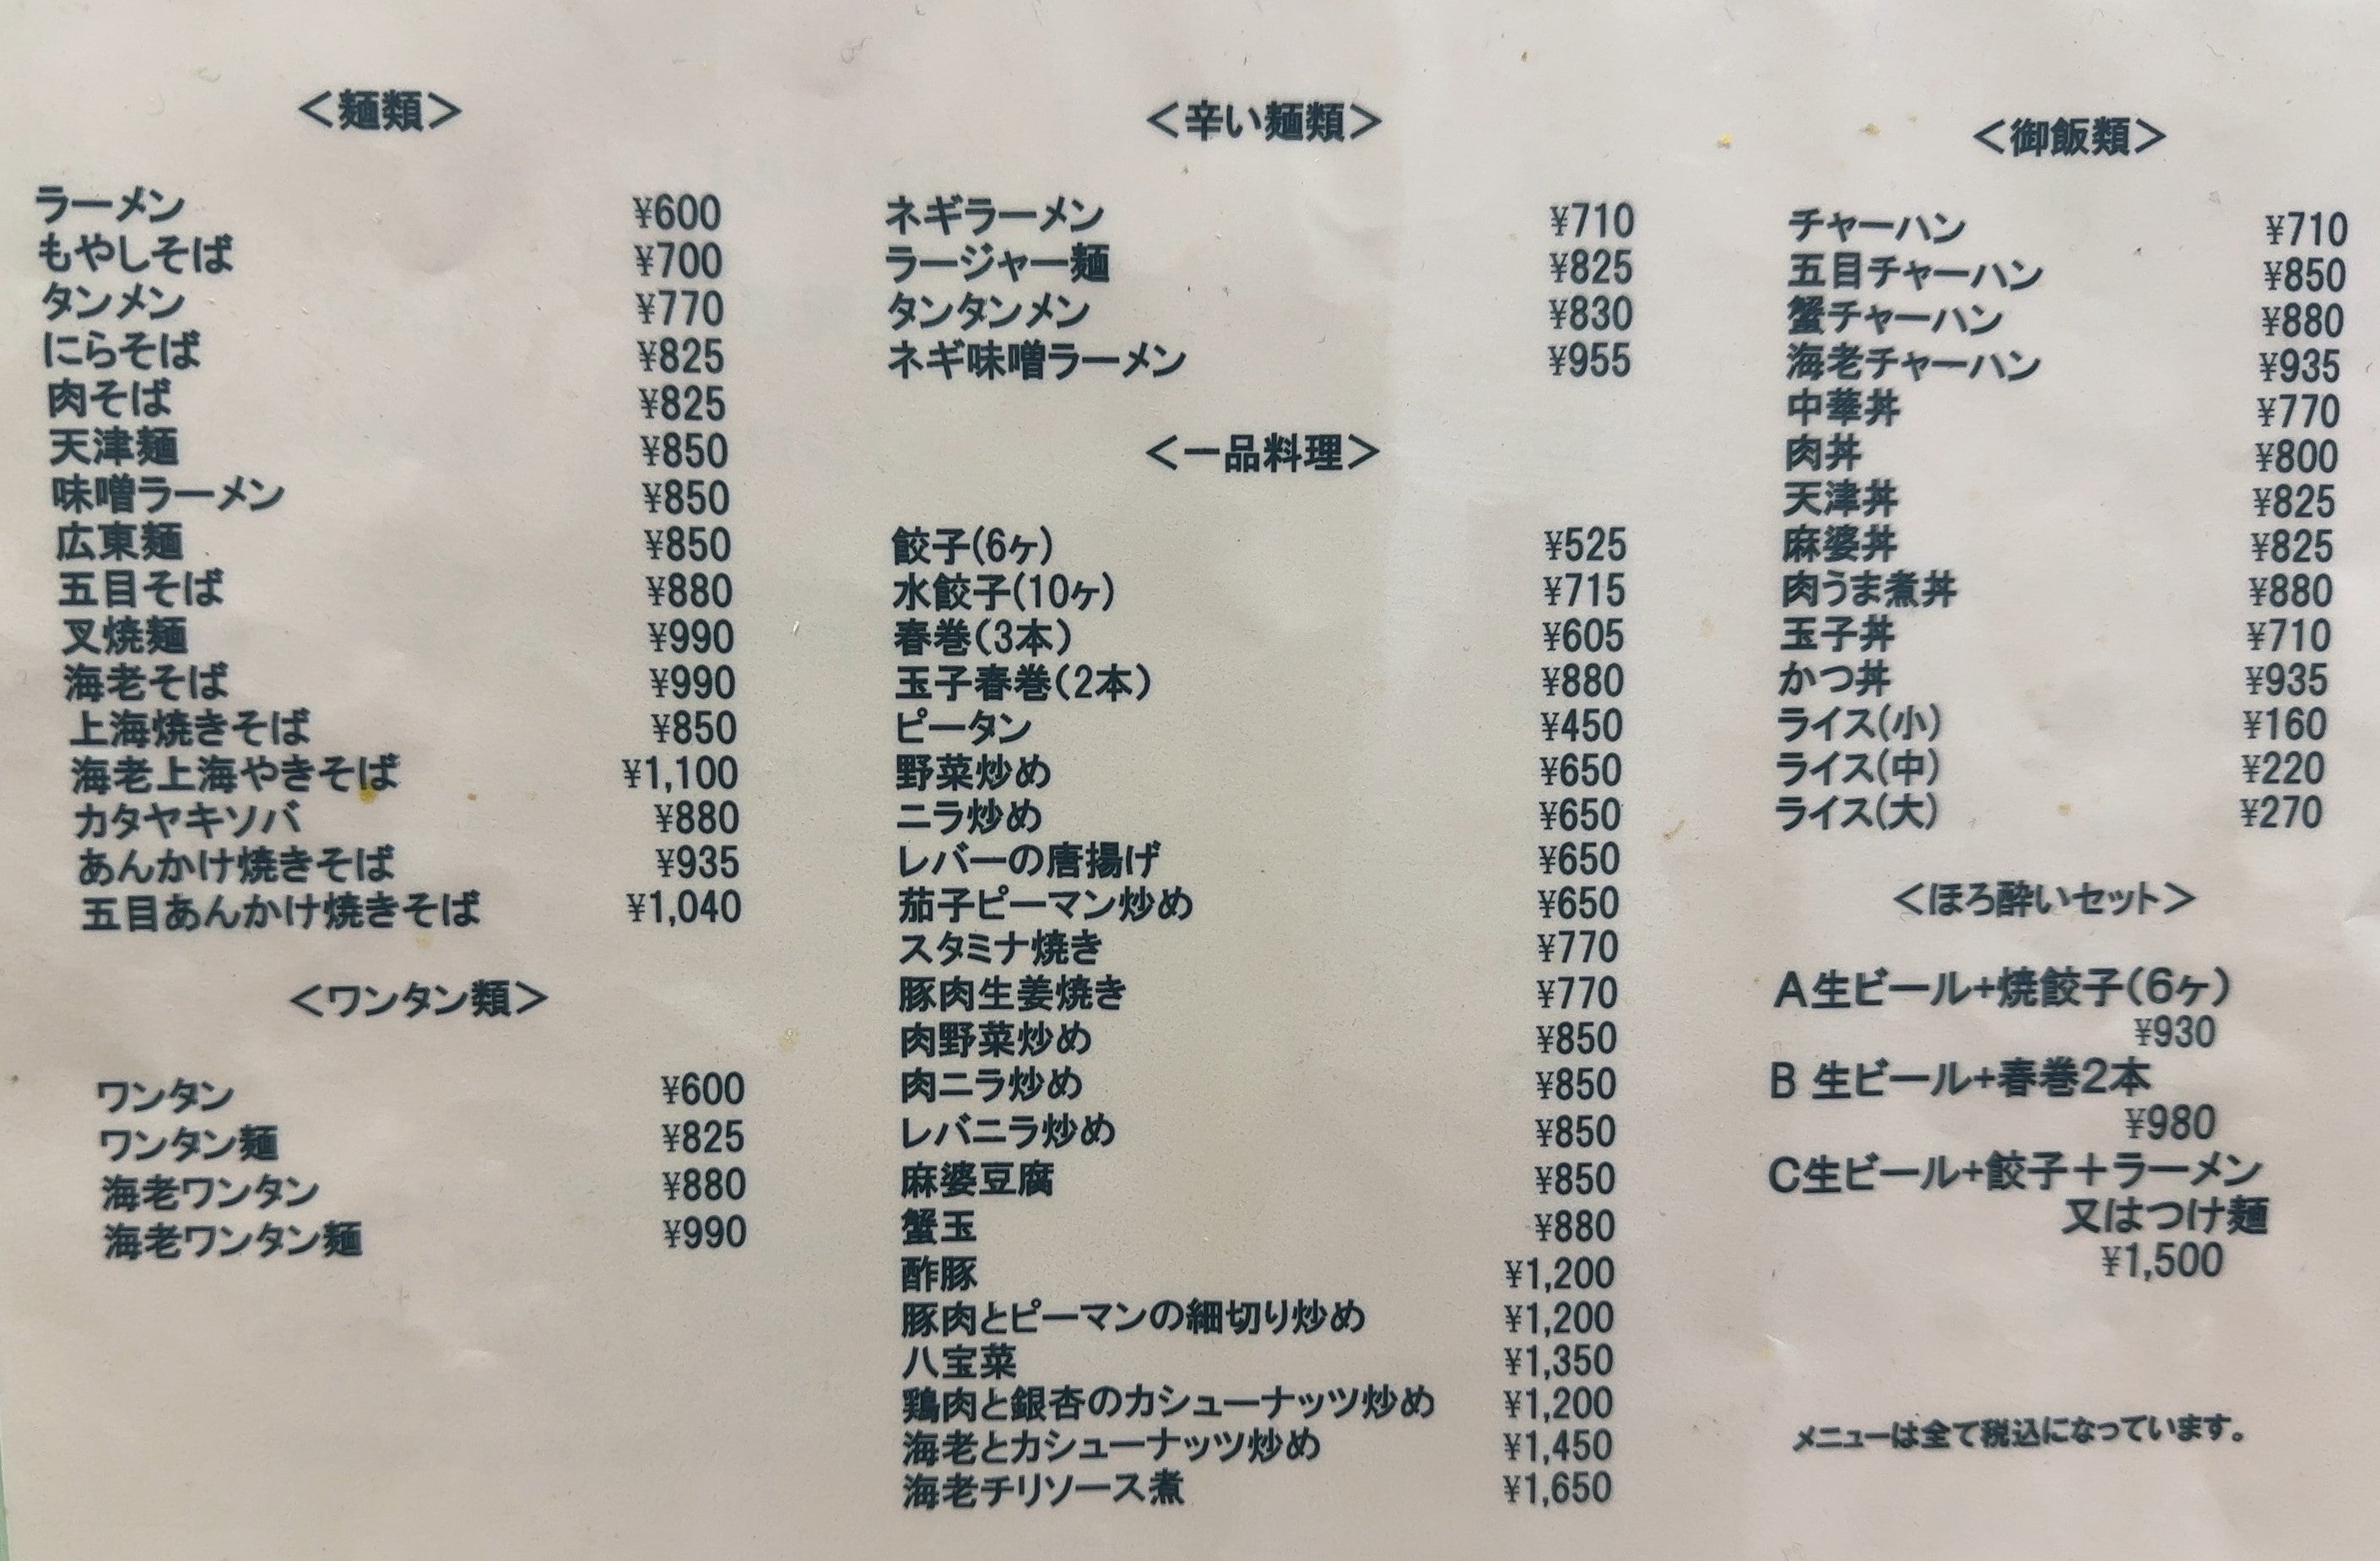 <麺類>
ラーメン ¥600
もやしそば ¥700
タンメン ¥770
にらそば ¥825
肉そば ¥825
天津麺 ¥850
味噌ラーメン ¥850
広東麺 ¥850
五目そば ¥880
叉焼麺 ¥990
海老そば ¥990
上海焼きそば ¥850
海老上海やきそば ¥1,100
カタヤキソバ ¥880
あんかけ焼きそば ¥935
五目あんかけ焼きそば ¥1,040
<ワンタン類>
ワンタン ¥600
ワンタン麺 ¥825
海老ワンタン ¥880
海老ワンタン麺 ¥990
<辛い麺類>
ネギラーメン ¥710
ラージャー麺 ¥825
タンタンメン ¥830
ネギ味噌ラーメン ¥955
<一品料理>
餃子(6ヶ) ¥525
水餃子(10ヶ) ¥715
春巻(3本) ¥605
玉子春巻(2本) ¥880
ピータン ¥450
野菜炒め ¥650
ニラ炒め ¥650
レバーの唐揚げ ¥650
茄子ピーマン炒め ¥650
スタミナ焼き ¥770
豚肉生姜焼き ¥770
肉野菜炒め ¥850
肉ニラ炒め ¥850
レバニラ炒め ¥850
麻婆豆腐 ¥850
蟹玉 ¥880
酢豚 ¥1,200
豚肉とピーマンの細切り炒め ¥1,200
八宝菜 ¥1,350
鶏肉と銀杏のカシューナッツ炒め ¥1,200
海老とカシューナッツ炒め ¥1,450
海老チリソース煮 ¥1,650
<御飯類>
チャーハン ¥710
五目チャーハン ¥850
蟹チャーハン ¥880
海老チャーハン ¥935
中華丼 ¥770
肉丼 ¥800
天津丼 ¥825
麻婆丼 ¥825
肉うま煮丼 ¥880
玉子丼 ¥710
かつ丼 ¥935
ライス(小) ¥160
ライス(中) ¥220
ライス(大) ¥270
<ほろ酔いセット>
A生ビール+焼餃子(6ヶ)
¥930
B 生ビール+春巻2本
¥980
C生ビール+餃子+ラーメン
又はつけ麺
¥1,500
メニューは全て税込になっています。